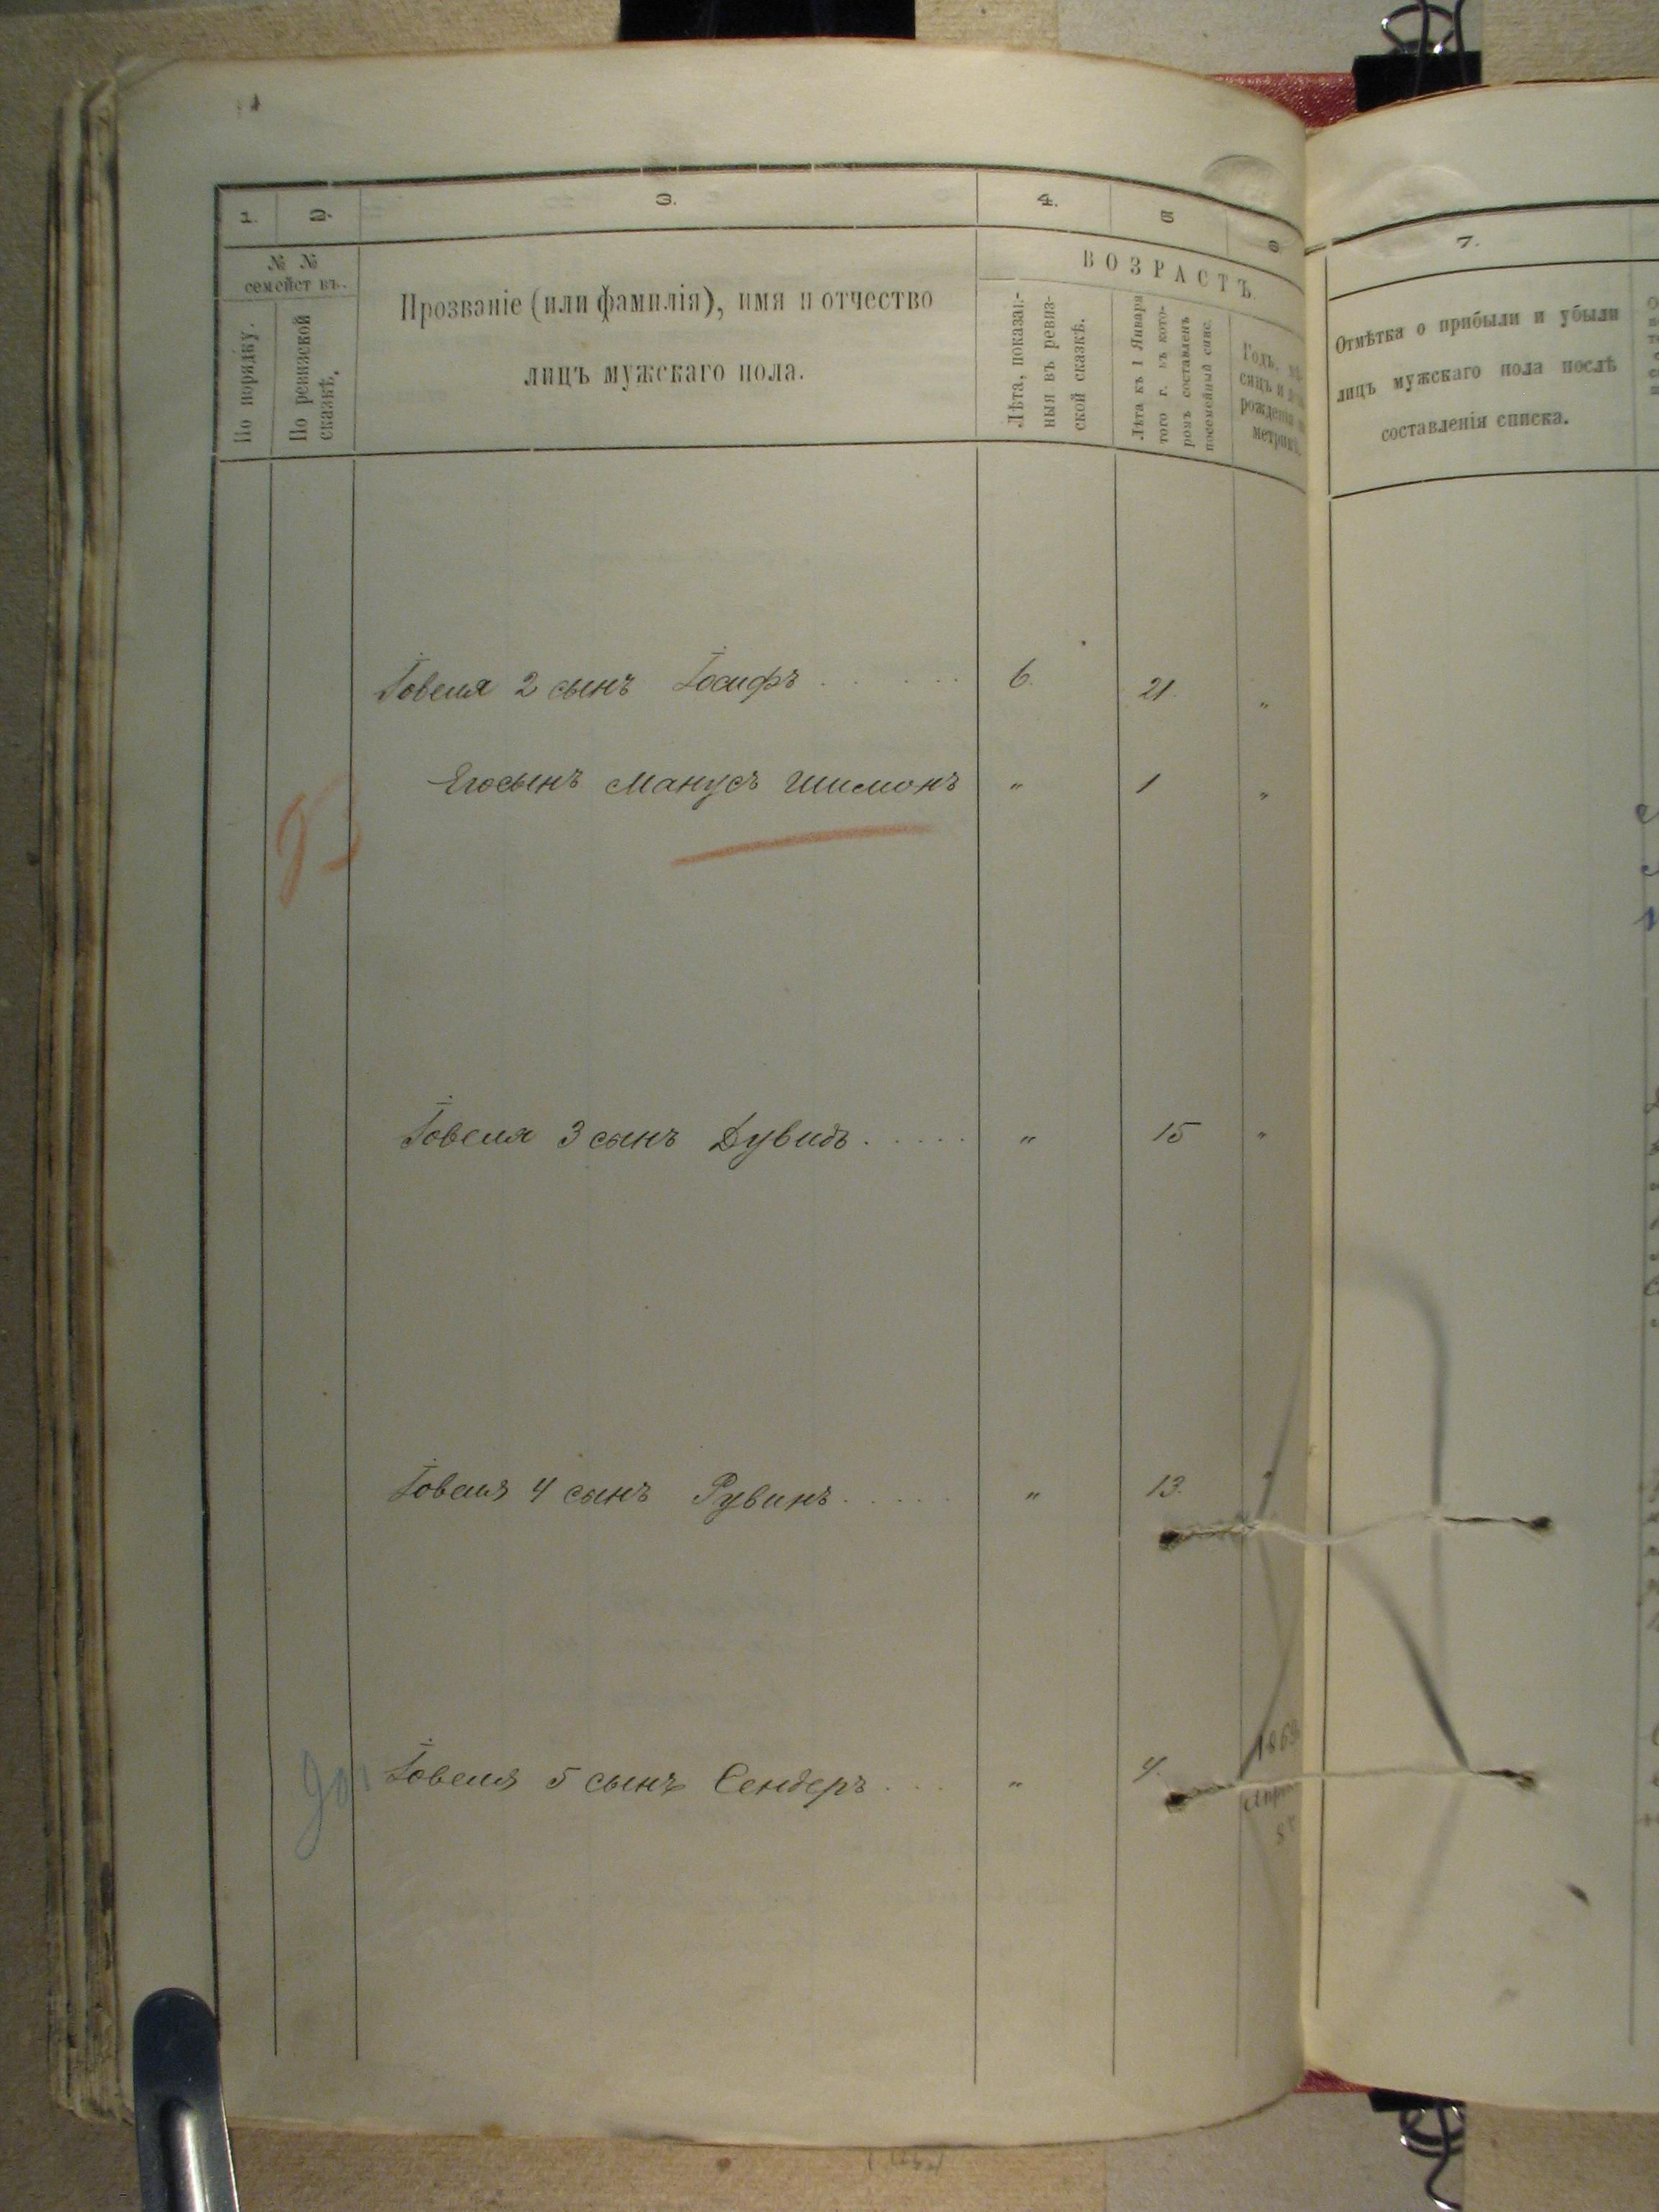 1. 2. 3. 4. 5 6
№ № семействъ.
По порядку.
По ревизской сказкѣ.
Прозваніе (или фамилія), имя и отчество
лицъ мужскаго пола.
ВОЗРАСТЪ.
Лѣта, показан-
ныя въ ревиз-
ской сказкѣ.
Лѣта къ 1 Января
того г. въ кото-
ромъ составленъ
посемейный спис.
Годъ, мѣ-
сяцъ и
рожденія
метрик
Іовеля 2 сынъ Іосифъ . . . . . . 6. 21. "
Его сынъ Манусъ Шимонъ " 1 "
93
Іовеля 3 сынъ Дувидъ . . . . . " 15 "
Іовеля 4 сынъ Рувинъ . . . . . " 13. "
Іовеля 5 сынъ Сендеръ . . . . " 4. 1869
Апр
7.
Отмѣтка о прибыли и убыли
лицъ мужскаго пола послѣ
составленія списка.